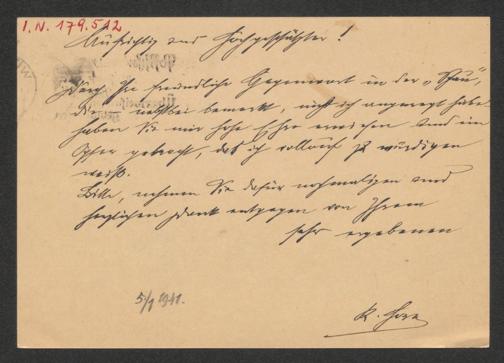 I.N. 179.512
Aufrichtig und Hochgeschätzter!
Durch Ihre freundliche Gegenwart in der
die nebstbei bemerkt, nicht ich angeregt habe,
haben Sie mir hohe Ehre erwiesen und ein
Opfer gebracht, das ich vollauf zu würdigen
weiß.
Bitte, nehmen Sie dafür nochmaligen und
herzlichen Dank entgegen von Ihrem
sehr ergebenen
5/1 1941.
K.